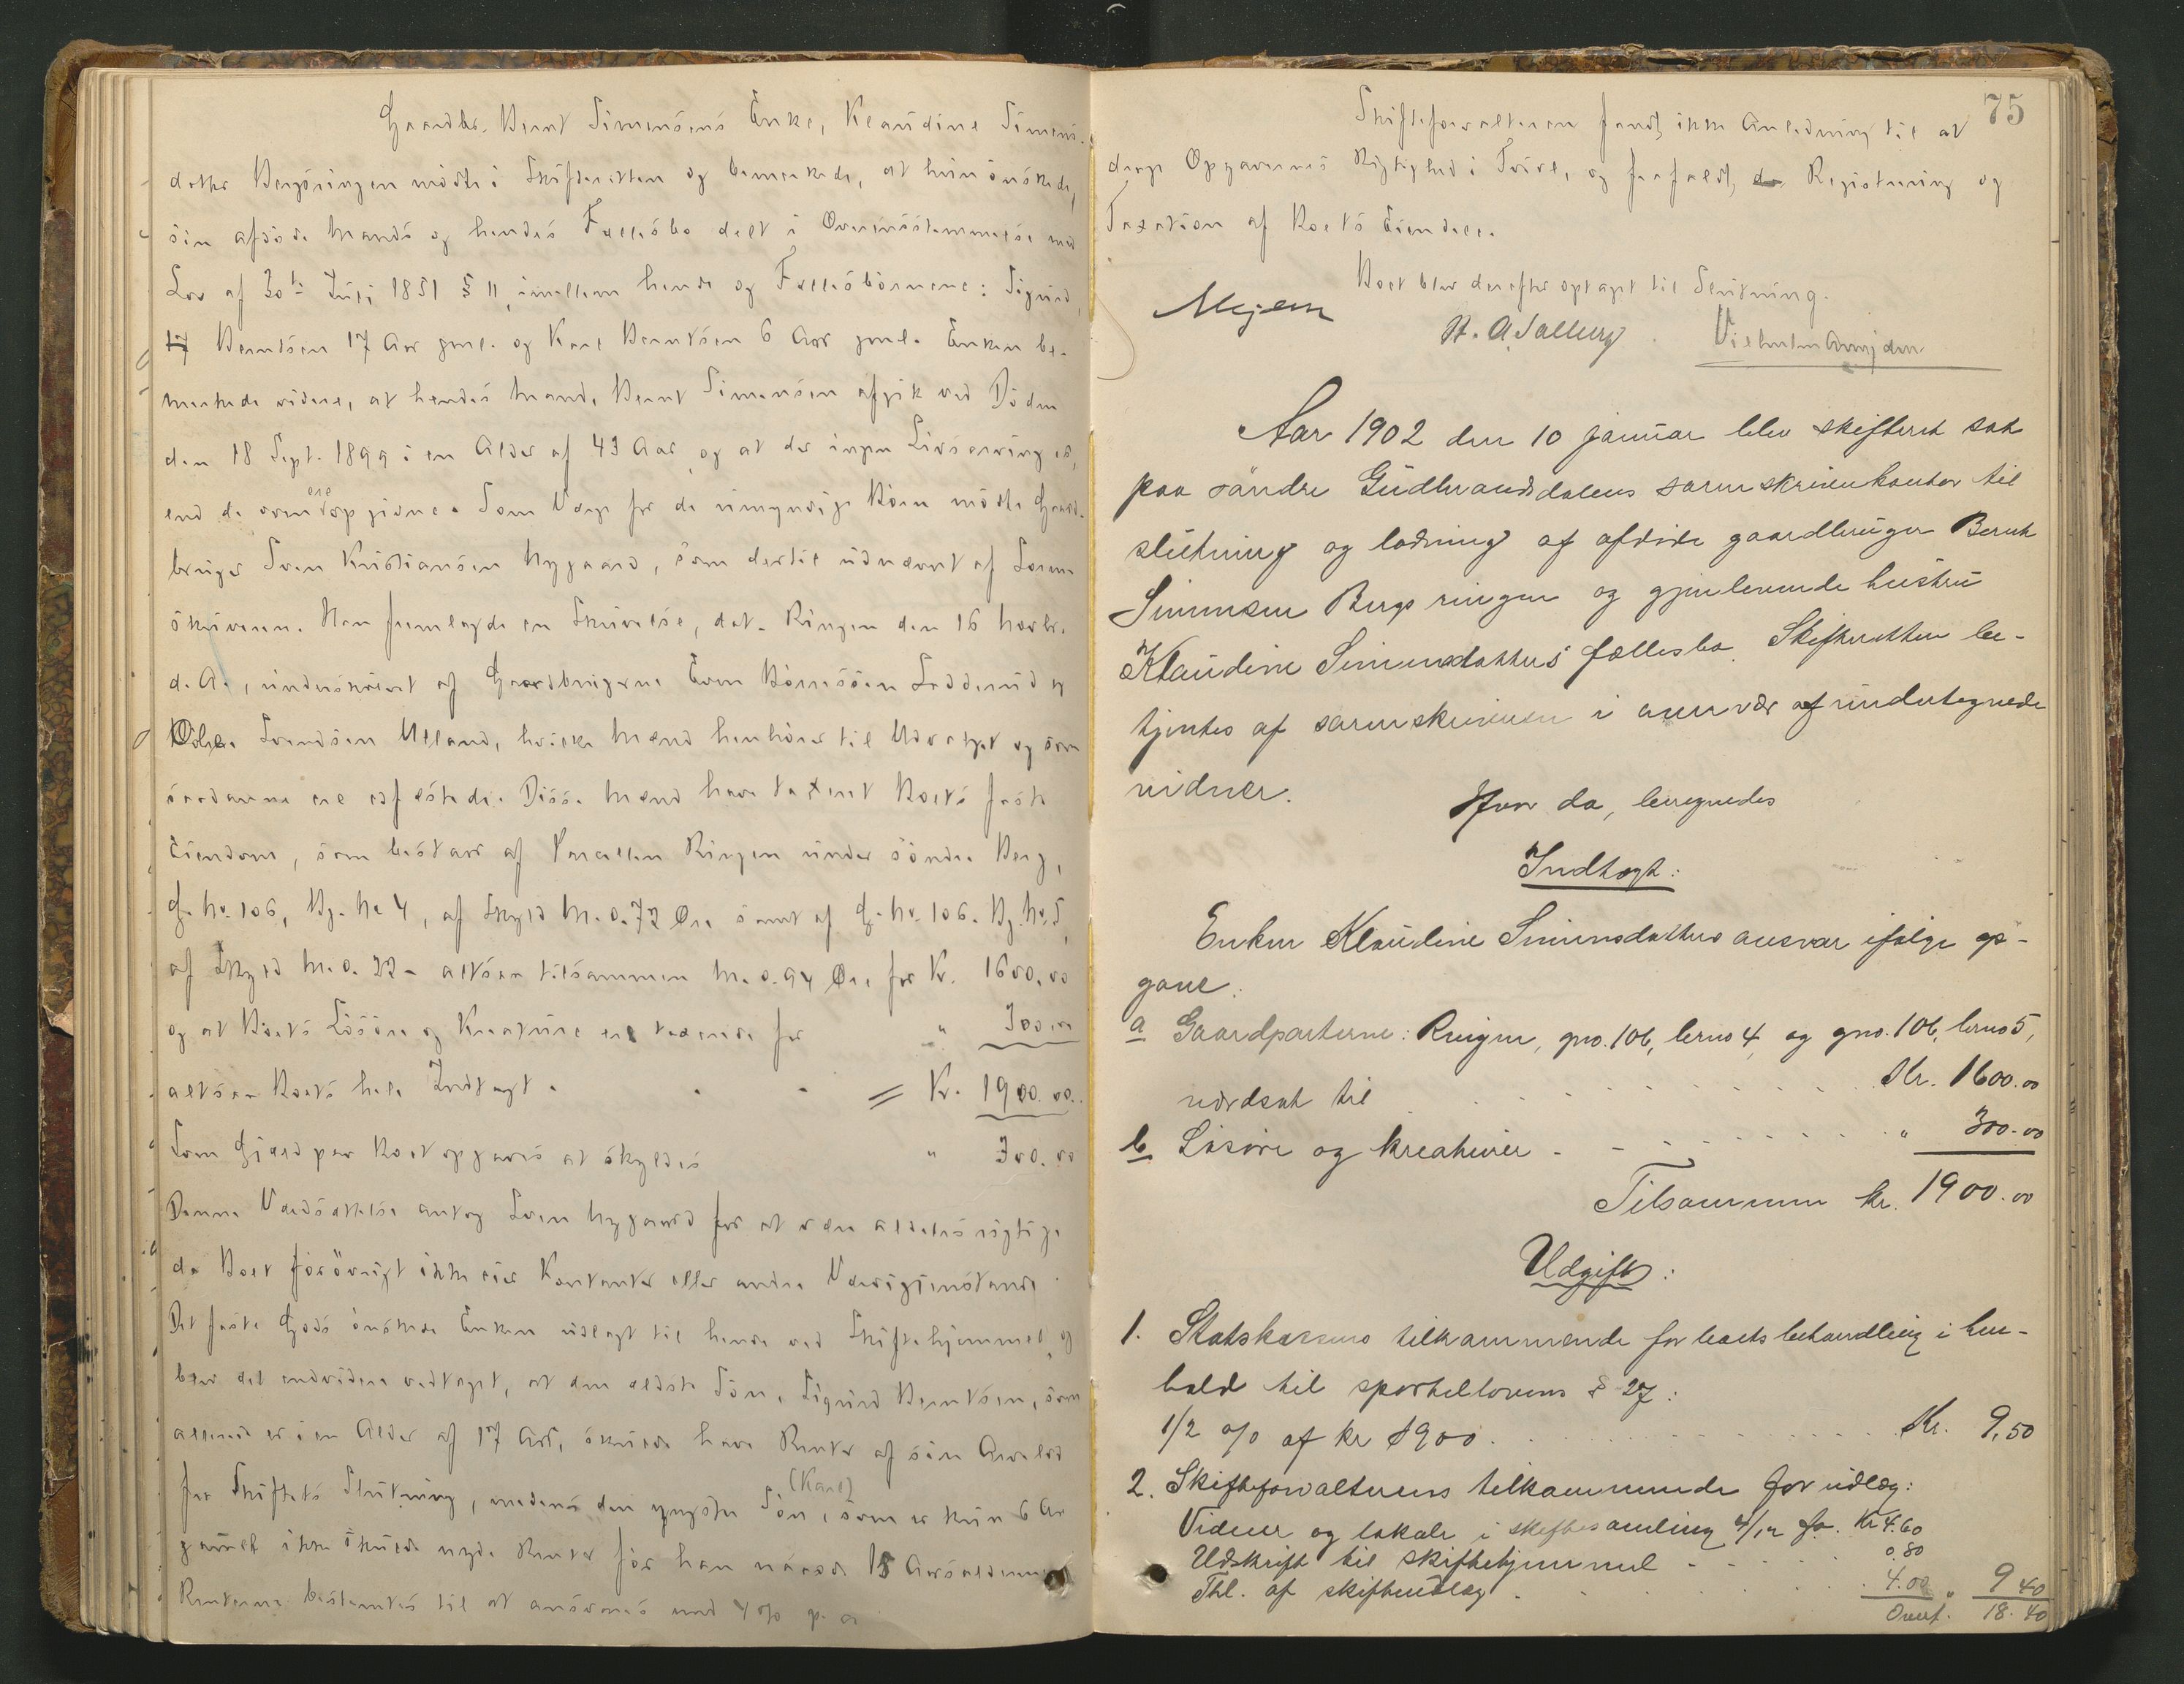 Gaardbr. Bernt Simensens Enke, Klaudine Simens-
datter Bergsringen mødte i Skifteretten og bemerkede, at hun ønskede,
sin afdøde Mands og hendes Fællesbo delt i Overensstemmelse med
Lov af 30te Juli 1851 § 11, imellem hende og Fællesbørnene: Sigurd,
17 Berntsen 17 Aar gml. og Karl Berntsen 6 Aar gml. Enken be-
merkede videre, at hendes Mand, Bernt Simensen afgik ved Døden
den 18 Sept. 1899 i en Alder af 43 Aar, og at der ingen Livsarving er,
end de ovenopgivne. Som Værge for de umyndige Børn mødte Gaard-
bruger Sven Kristiansen Nygaard, som dertil udnævnt af Soren-
skriveren. Han fremlagde en Skrivelse, dat. Ringen den 16 Novbr.
d. A., underskrevet af Gaardbrugerne Even Børresøen Ladderud og
Ole Svendsen Ulland, hvilke Mænd henhører til Udvalget og som
saadanne ere edfæstede. Disse Mænd have taxeret Boets faste
Eiendom, som bestaar af Parcellen Ringen under søndre Berg,
G. No. 106, Bg. No 4, af Skyld M. 0.72 Øre samt af G. No. 106. Bg. No. 5,
af Skyld M. 0. 22 - altsaa tilsammen M. 0.94 Øre for Kr. 1600.00
og at Boets Løsøre og Kreature ere taxerede for " 300.00
altsaa Boets hele Indtægt . . . = Kr. 1900.00.
Som Gjæld paa Boet opgaves at skyldes " 300.00
Denne Værdsættelse antog Sven Nygaard for at være aldeles rigtige
da Boet forøvrigt ikke eier Kontanter eller andre Værdigjenstande
Det faste Gods ønskede Enken udlagt til hende ved Skiftehjemmel, og
blev det endvidere vedtaget, at den ældste Søn, Sigurd Berntsen, som
allerede er i en Alder af 17 Aar, skulde have Renter af sin Arvelod
fra Skiftets Slutning, medens den yngste Søn, (Karl) som er kun 6 Aar
gammel ikke skulde nyde Renter før han naaede 15 Aarsalderen
Renterne bestemtes til at ansvares med 4 % p. a
75
Skifteforvalteren fandt ikke Anledning til at
drage Opgavernes Rigtighed i Tvivl, og frafaldt, Registrering og
Taxation af Boets Eiendele.
Boet blev derefter optaget til Slutning.
Mejem
H. A. Salberg. Vilhelm
Aar 1902 den 10 januar blev skifteret sat
paa søndre Gudbrandsdalens sorenskriverkontor til
slutning og lodning af afdøde gaardbruger Bernt
Simensen Bergsringen og gjenlevende hustru
Klaudine Simensdatters fællesbo. Skifteretten be-
tjentes af sorenskriveren i overvær af undertegnede
vidner.
Hvor da, beregnedes
Indtægt:
Enken Klaudine Simensdatters ansvar ifølge op-
gave:
a Gaardparterne: Ringen, gno. 106, brno 4, og gno. 106, brno 5,
værdsat til . . . . Kr. 1600.00
b Løsøre og kreaturer - - - - " 300.00
Tilsammen kr. 1900.00
Udgift:
1. Statskassens tilkommende for boets behandling i hen-
hold til sportellovens § 27:
1/2 % af kr 1900. . . . . Kr. 9,50
2. Skifteforvalterens tilkommende for udlæg:
Vidner og lokale i skiftesamling 4/12 f.a. Kr 4.60
Udskrift til skiftehjemmel - - - 0.80
Thl. af skifteudlæg . . . . 4.00 " 9 40
Overf. 18. 40